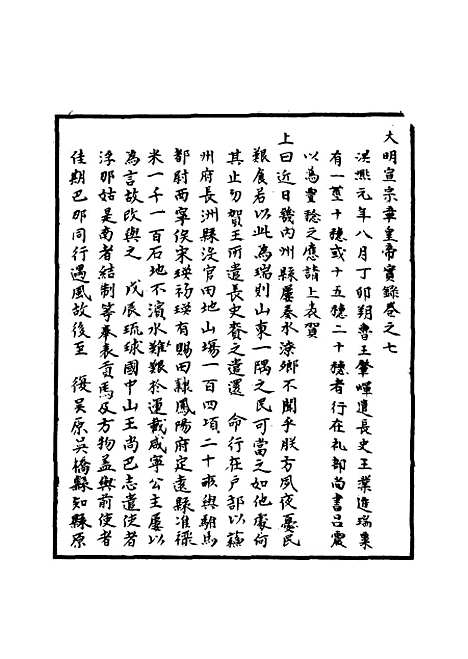 大明宣宗章皇帝實錄卷之七
洪熙元年八月丁卯朔魯王肇煇遣長史王業進瑞粟
有一莖十穗或十五穗二十穗者行在礼部尚書呂震
以為豐稔之應請上表賀
上曰近日畿內州縣屢奏水潦鄉不聞乎朕方夙夜憂民
艱食若以此為瑞則山東一隅之民可當之如他處何
其止勿賀王所遣長史賚之遣還 命行在戶部以蘇
州府長洲縣沒官田地山場一百四項二十畝與駙馬
都尉西寧侯宋瑛初瑛有賜田隸鳳陽府定遠縣准祿
米一千一百石地不濱水難艱於運載咸寧公主屢以
為言故改與之 戊辰琉球國中山王尚巴志遣使者
浮那姑是南者結制等奉表貢馬及方物盖與前使者
佳期巴那同行遇風故後至 復吳原吳橋縣知縣原